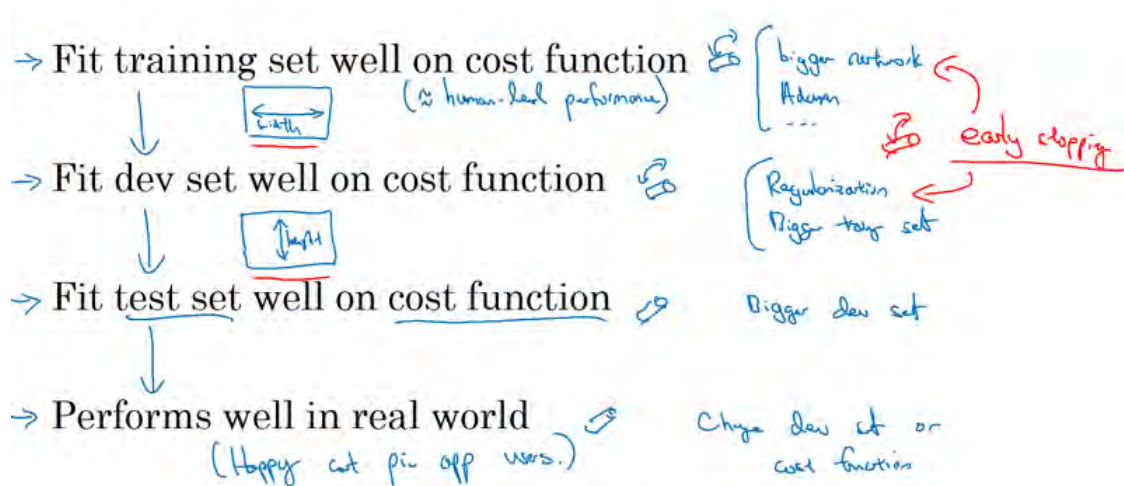 → Fit training set well on cost function
(≈ human-level performance)
bigger network
Adam
...
width
early stopping
→ Fit dev set well on cost function
Regularization
Bigger set
height
→ Fit test set well on cost function
Bigger dev set
→ Performs well in real world
(Happy cat pic app users.)
Change dev set or
cost function